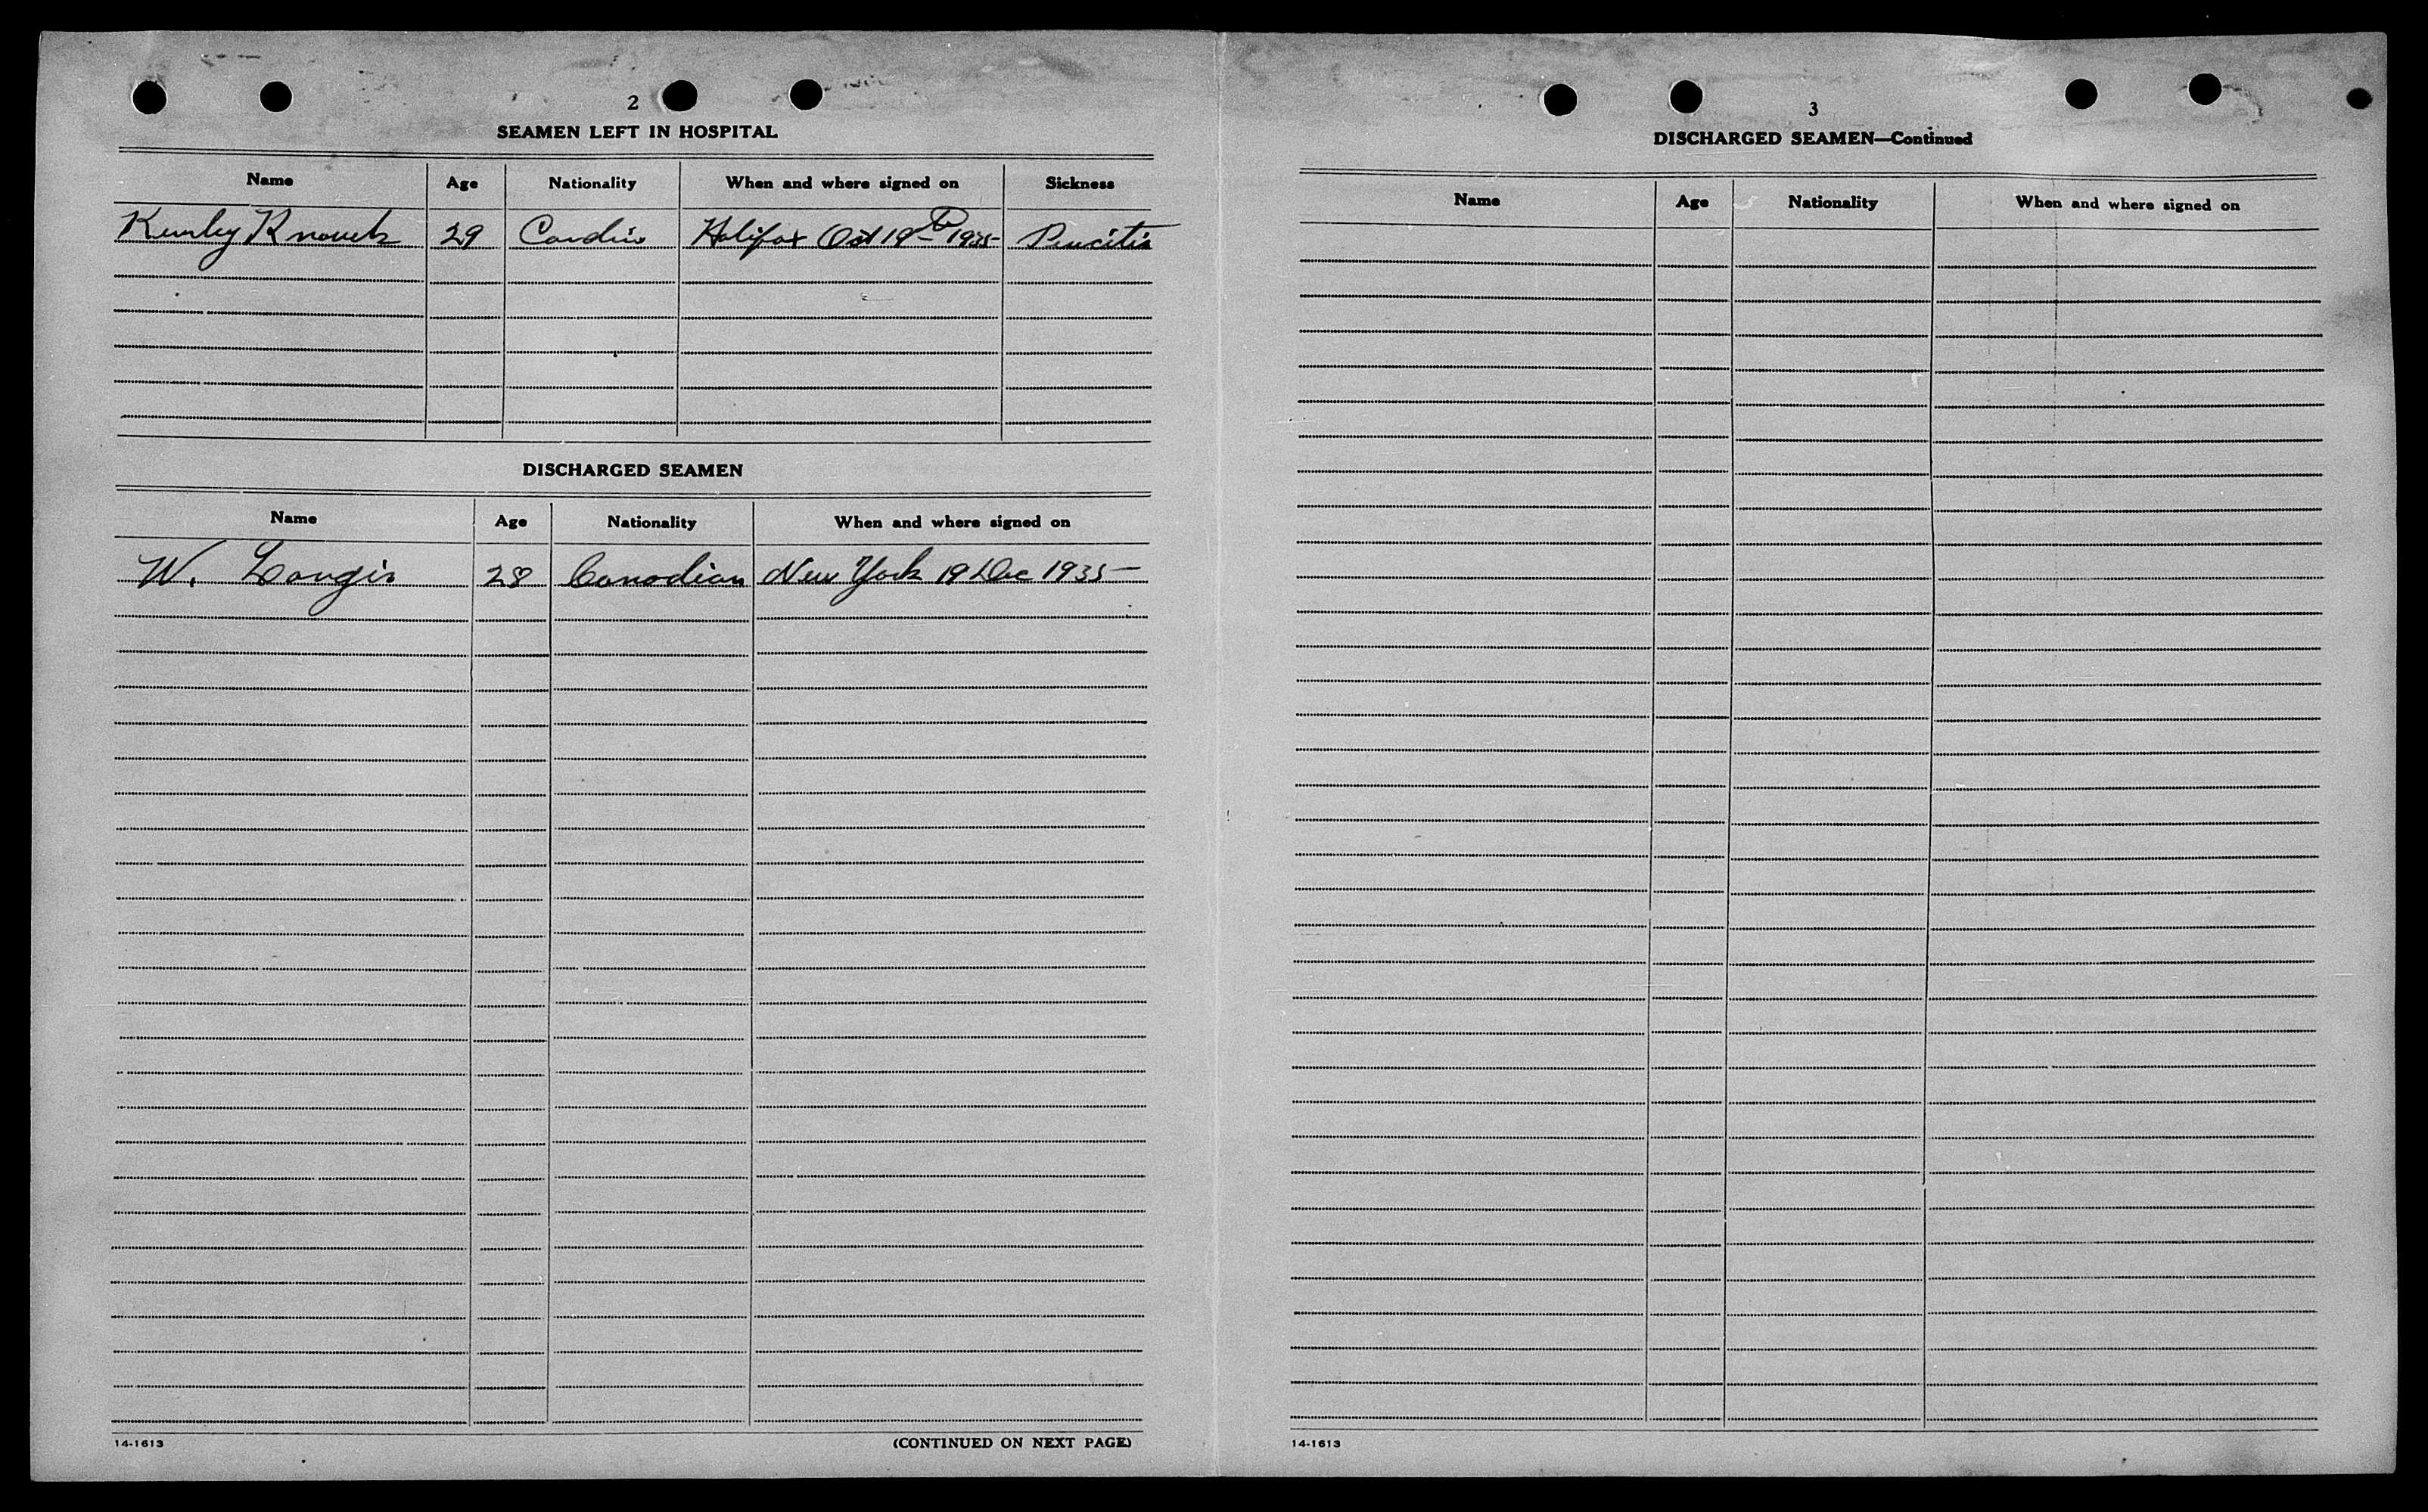 2
SEAMEN LEFT IN HOSPITAL
Name Age Nationality When and where signed on Sickness
29 Halifax Oct 19 1935
DISCHARGED SEAMEN
Name Age Nationality When and where signed on
W. Langis 28 Canadian New York 19 Dec 1935
14-1613 (CONTINUED ON NEXT PAGE)
3
DISCHARGED SEAMEN—Continued
Name Age Nationality When and where signed on
14-1613